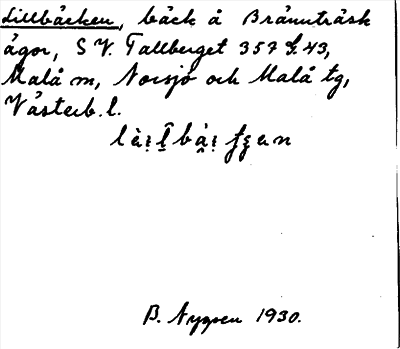 Lillbäcken, bäck å Brännträsk
ägor, SV. Tallberget 357 f. 43,
Malå m, Norsjö och Malå tg,
Västerb. l.
B. Nygren 1930.